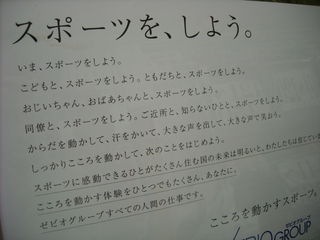 スポーツを、しよう。
いま、スポーツをしよう。
こどもと、スポーツをしよう。ともだちと、スポーツをしよう。
おじいちゃん、おばあちゃんと、スポーツをしよう。
同僚と、スポーツをしよう。ご近所と、知らないひとと、スポーツをしよう。
からだを動かして、汗をかいて、大きな声を出して、大きな声で笑おう。
しっかりこころを動かして、次のことをはじめよう。
スポーツに感動できるひとがたくさん住む国の未来は明るいと、わたしたちは信じてい
こころを動かす体験をひとつでもたくさん、あなたに。
ゼビオグループすべての人間の仕事です。
こころを動かすスポーツ。
ゼビオグループ
GROUP